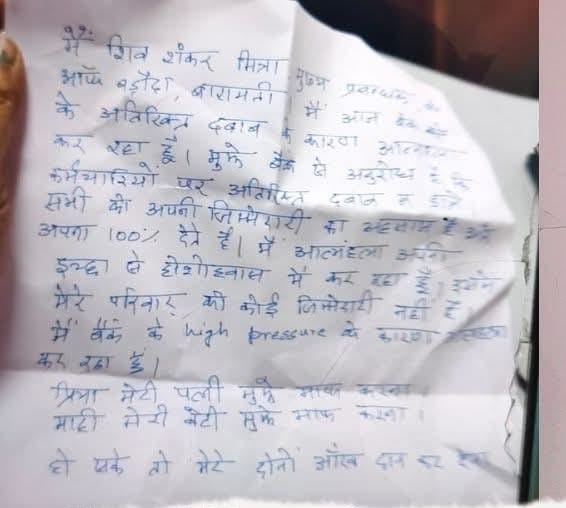 मैं शिव शंकर मित्रा मुख्य प्रबन्धक
ऑफ बड़ौदा, बारामती में आज बैंक
के अतिरिक्त दबाब के कारण आत्महत्या
कर रहा हूँ। मुझे बैंक से अनुरोध है कि
कर्मचारियों पर अतिरिक्त दबाब न डाले
सभी को अपनी जिम्मेदारी का अहसास है और
अपना 100% देते हैं। मैं आत्महत्या अपनी
इच्छा से होशोहवास में कर रहा हूँ, इसमें
मेरे परिवार की कोई जिम्मेदारी नहीं है।
मैं बैंक के high pressure के कारण आत्महत्या
कर रहा हूँ।
प्रिया मेरी पत्नी मुझे माफ करना
माही मेरी बेटी मुझे माफ करना।
हो सके तो मेरे दोनों आँख दान कर देना